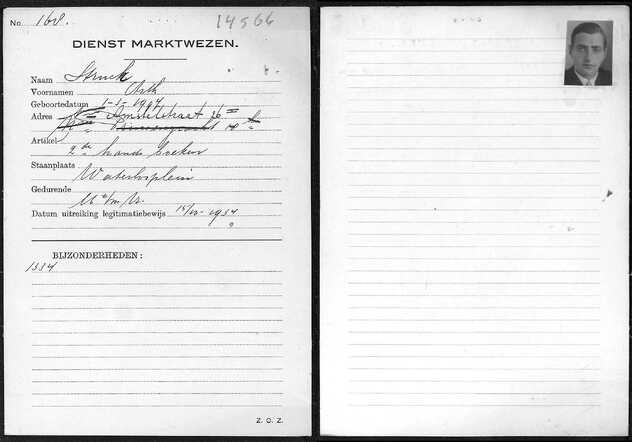 No. 168. 14566
DIENST MARKTWEZEN.
Naam Struck
Voornamen
Geboortedatum 1-1-1907
Adres Amstelstraat 26
Artikel 2de hands boeken
Staanplaats Waterlooplein
Gedurende
Datum uitreiking legitimatiebewijs 1934
BIJZONDERHEDEN:
1334
Z. O. Z.